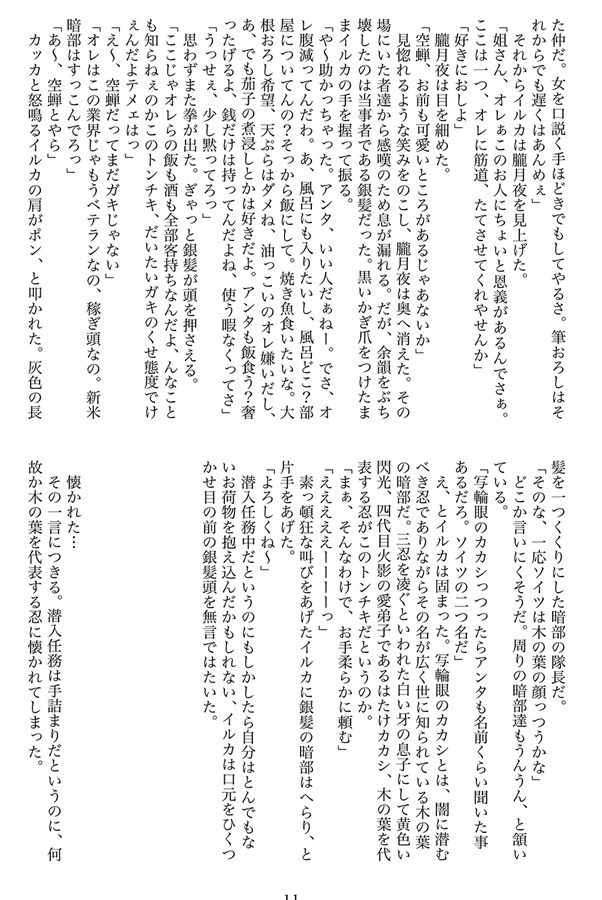 た仲だ。女を口説く手ほどきでもしてやるさ。筆おろしはそ
れからでも遅くはあんめぇ」
　それからイルカは朧月夜を見上げた。
「姐さん、オレぁこのお人にちょいと恩義があるんでさぁ。
ここは一つ、オレに筋道、たてさせてくれやせんか」
「好きにおしよ」
　朧月夜は目を細めた。
「空蝉、お前も可愛いところがあるじゃあないか」
　見惚れるような笑みをのこし、朧月夜は奥へ消えた。その
場にいた者達から感嘆のため息が漏れる。だが、余韻をぶち
壊したのは当事者である銀髪だった。黒いかぎ爪をつけたま
まイルカの手を握って振る。
「や〜助かっちゃった。アンタ、いい人だぁねー。でさ、オ
レ腹減ってんだわ。あ、風呂にも入りたいし、風呂どこ？部
屋についてんの？そっから飯にして。焼き魚食いたいな。大
根おろし希望、天ぷらはダメね、油っこいのオレ嫌いだし、
あ、でも茄子の煮浸しとかは好きだよ。アンタも飯食う？奢
ったげるよ、銭だけは持ってんだよね、使う暇なくってさ」
「うっせぇ、少し黙ってろっ」
　思わずまた拳が出た。ぎゃっと銀髪が頭を押さえる。
「ここじゃオレらの飯も酒も全部客持ちなんだよ、んなこと
も知らねぇのかこのトンチキ、だいたいガキのくせ態度でけ
ぇんだよテメェはっ」
「え〜、空蝉だってまだガキじゃない」
「オレはこの業界じゃもうベテランなの、稼ぎ頭なの。新米
暗部はすっこんでろっ」
「あ〜、空蝉とやら」
　カッカと怒鳴るイルカの肩がポン、と叩かれた。灰色の長
髪を一つくくりにした暗部の隊長だ。
「そのな、一応ソイツは木の葉の顔っつうかな」
　どこか言いにくそうだ。周りの暗部達もうんうん、と頷い
ている。
「写輪眼のカカシっつったらアンタも名前くらい聞いた事
あるだろ。ソイツの二つ名だ」
　え、とイルカは固まった。写輪眼のカカシとは、闇に潜む
べき忍でありながらその名が広く世に知られている木の葉
の暗部だ。三忍を凌ぐといわれた白い牙の息子にして黄色い
閃光、四代目火影の愛弟子であるはたけカカシ、木の葉を代
表する忍がこのトンチキだというのか。
「まぁ、そんなわけで、お手柔らかに頼む」
「えええええーーーーっ」
　素っ頓狂な叫びをあげたイルカに銀髪の暗部はへらり、と
片手をあげた。
「よろしくね〜」
　潜入任務中だというのにもしかしたら自分はとんでもな
いお荷物を抱え込んだかもしれない、イルカは口元をひくつ
かせ目の前の銀髪頭を無言ではたいた。
　懐かれた…
　その一言につきる。潜入任務は手詰まりだというのに、何
故か木の葉を代表する忍に懐かれてしまった。
11